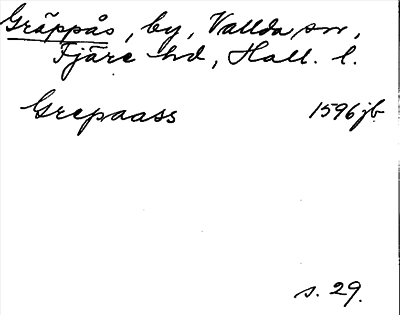 Gräppås, by, Vallda sn,
Fjäre hd, Hall. l.
Grepaass 1596 jb.
s. 29.